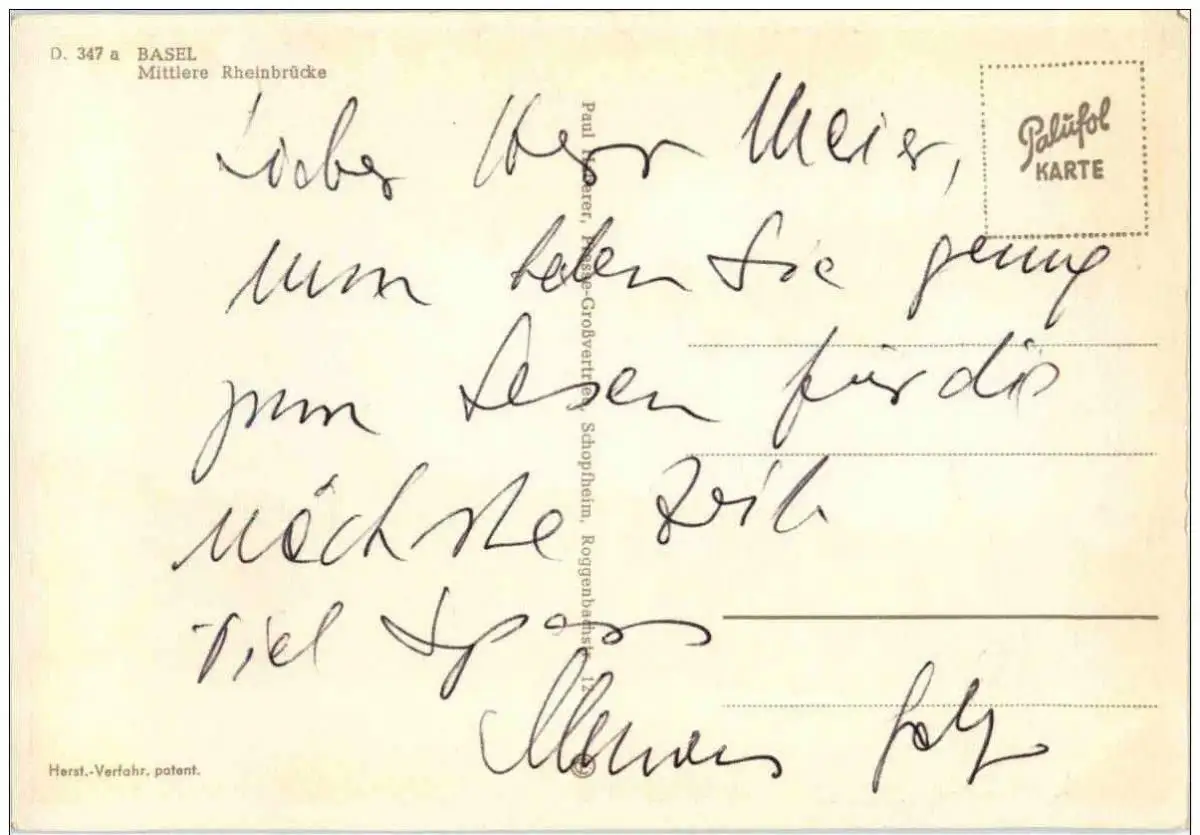 D. 347 a BASEL
Mittlere Rheinbrücke
Palüfol
KARTE
Lieber Herr Meier,
nun haben Sie genug
zum Lesen für die
nächste Zeit
Viel Spass
Paul erer, Presse-Großvertrieb, Schopfheim, Roggenbachstr. 12
Herst.-Verfahr. patent.